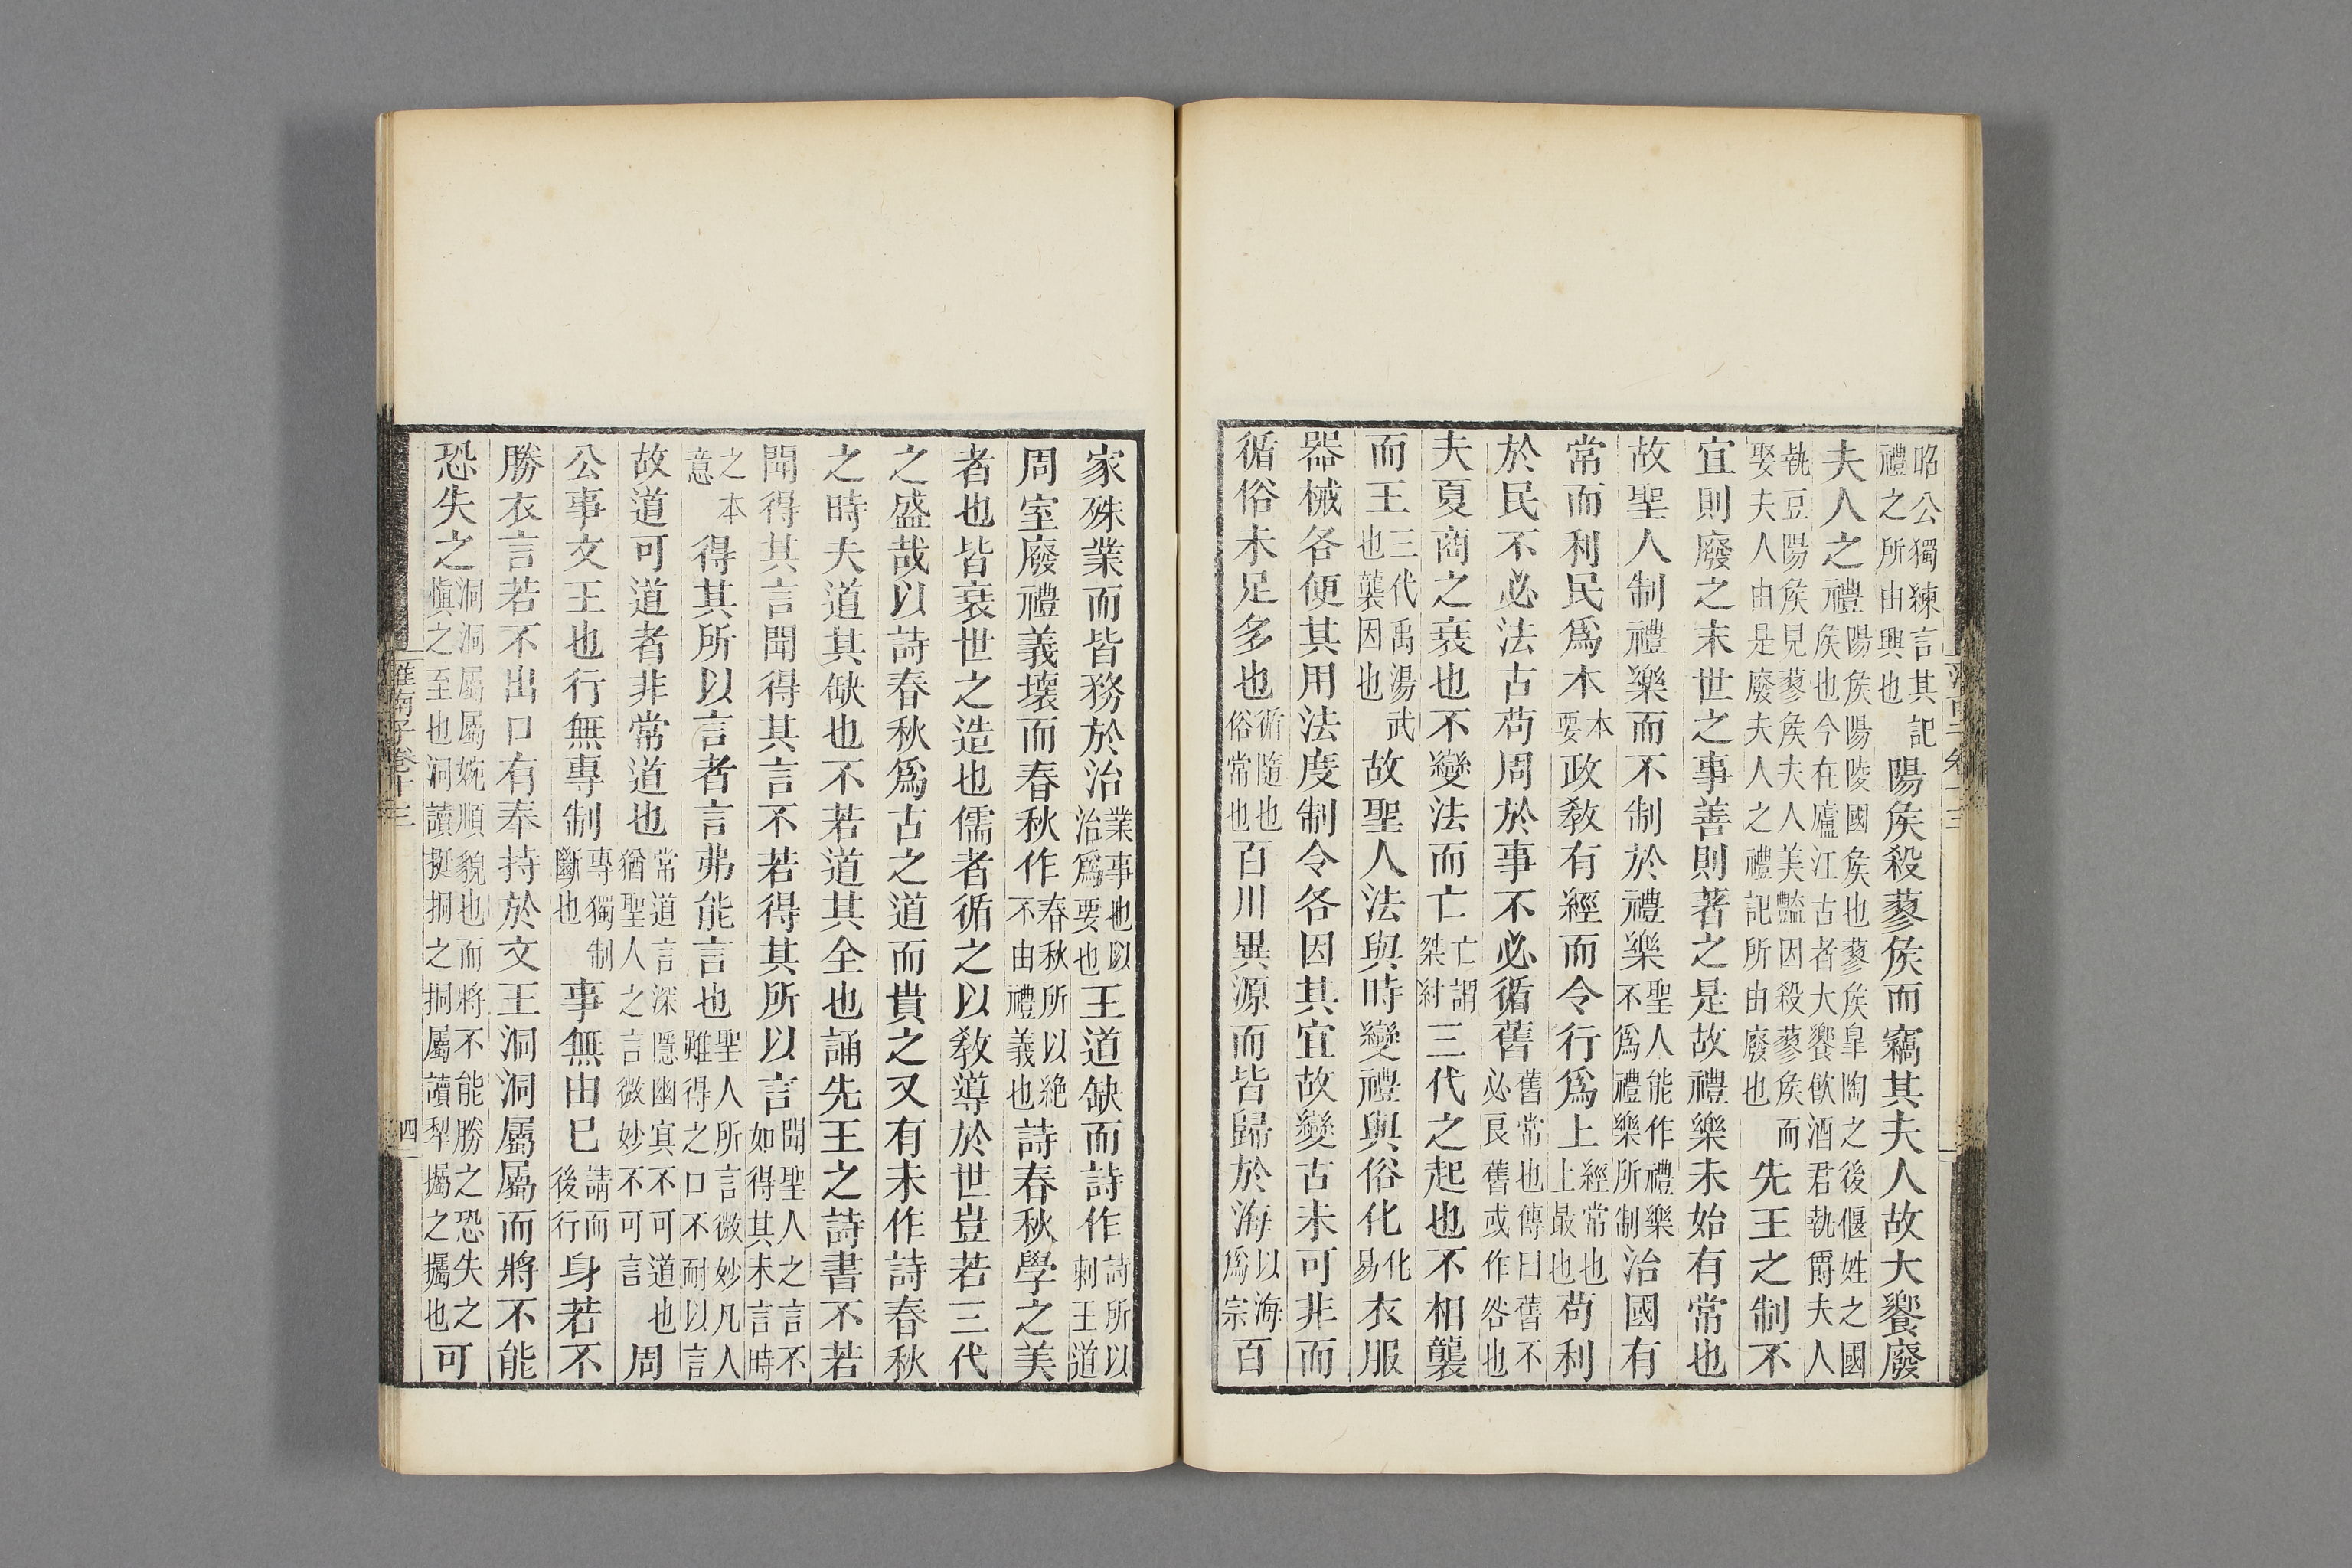 昭公獨練言其記禮之所由興也陽矦殺蓼矦而竊其夫人故大饗廢
夫人之禮陽矦陽陵國矦也蓼矦皐陶之後偃姓之國矦也今在廬江古者大饗飲酒君執爵夫人
執豆陽矦見蓼矦夫人美豔因殺蓼矦而娶夫人由是廢夫人之禮記所由廢也先王之制不
宜則廢之末世之事善則著之是故禮樂未始有常也
故聖人制禮樂而不制於禮樂聖人能作禮樂不爲禮樂所制治國有
常而利民爲本本要政敎有經而令行爲上經常也上最也苟利
於民不必法古苟周於事不必循舊舊常也傳曰舊不必良舊或作咎也
夫夏商之衰也不變法而亡亡謂桀紂三代之起也不相襲
而王三代禹湯武也襲因也故聖人法與時變禮與俗化化易衣服
器械各便其用法度制令各因其宜故變古未可非而
循俗未足多也循隨也俗常也百川異源而皆歸於海以海爲宗百
家殊業而皆務於治業事也以治爲要也王道缺而詩作詩所以刺王道
周室廢禮義壞而春秋作春秋所以絶不由禮義也詩春秋學之美
者也皆衰世之造也儒者循之以敎導於世豈若三代
之盛哉以詩春秋爲古之道而貴之又有未作詩春秋
之時夫道其缺也不若道其全也誦先王之詩書不若
聞得其言聞得其言不若得其所以言聞聖人之言不如得其未言時
之本意得其所以言者言弗能言也聖人所言微妙凡人雖得之口不耐以言
故道可道者非常道也常道言深隱幽冥不可道也猶聖人之言微妙不可言周
公事文王也行無專制專獨制斷也事無由己請而後行身若不
勝衣言若不出口有奉持於文王洞洞屬屬而將不能
恐失之洞洞屬屬婉順貌也而將不能勝之恐失之愼之至也洞讀挺挏之挏屬讀犁攜之攜也可
淮南子卷十三
四